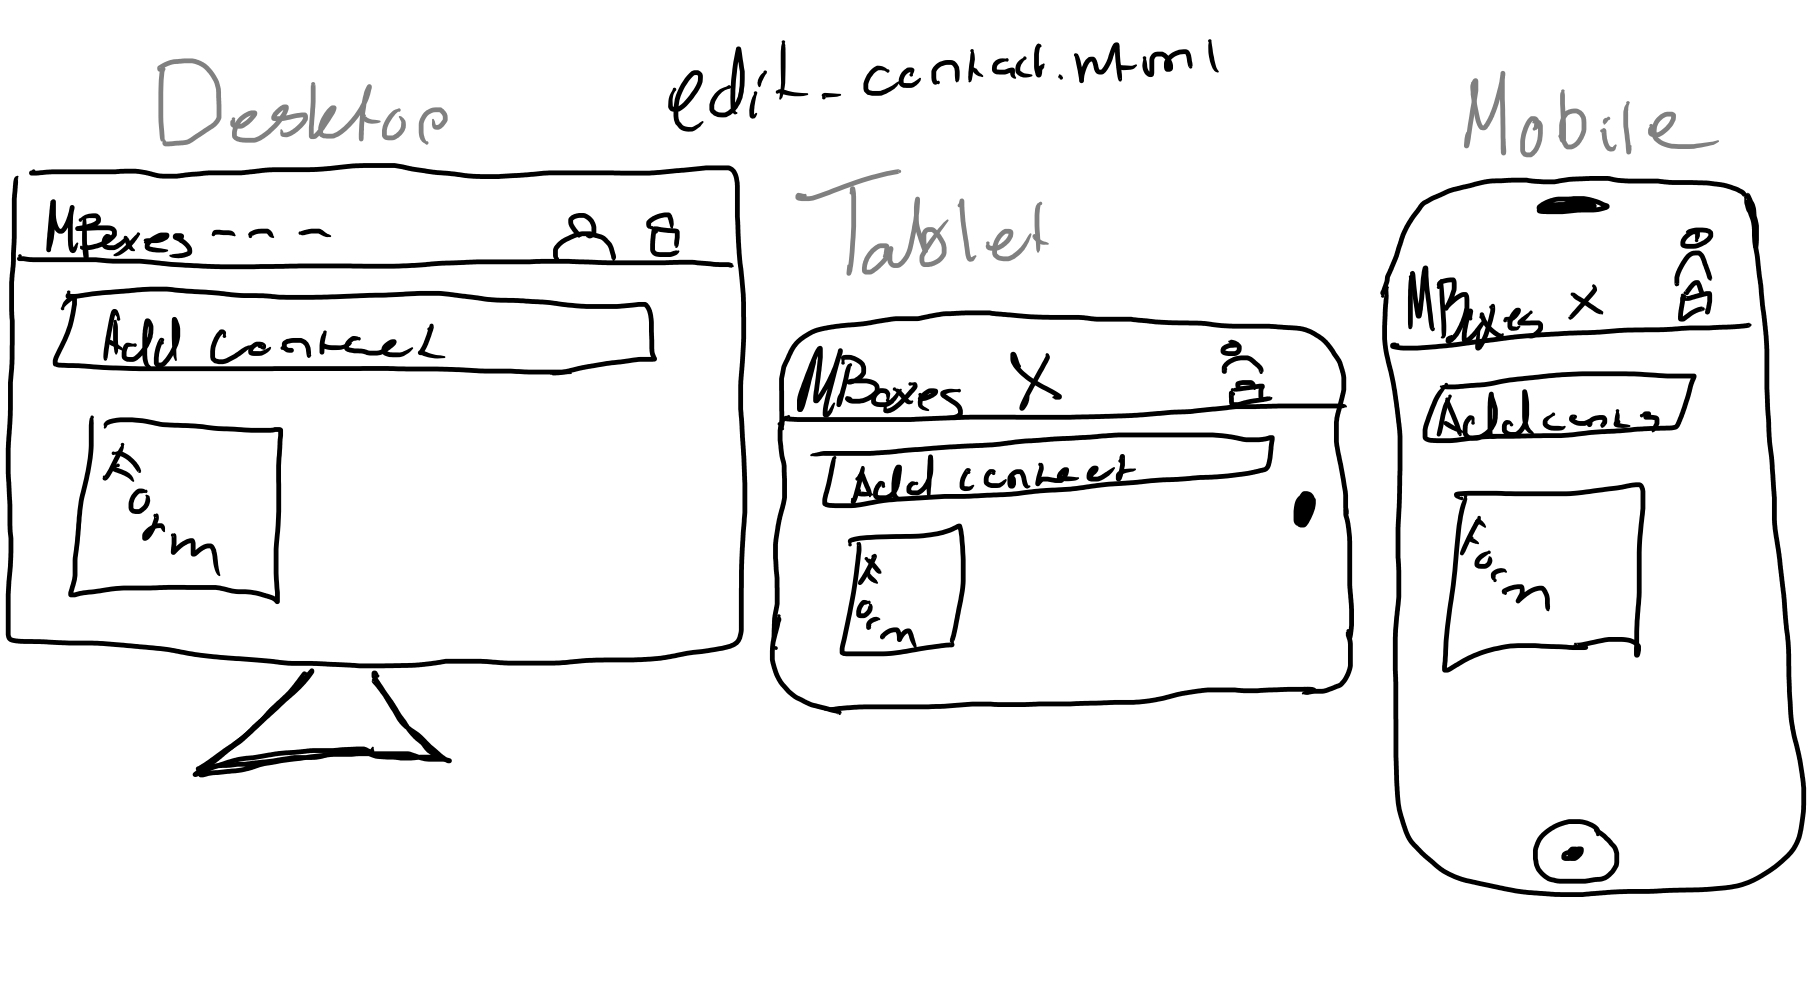 edit_contact.html
Desktop
MBoxes - - -
Add contact
Form
Tablet
MBoxes X
Add contact
Form
Mobile
MBoxes X
Add
Form